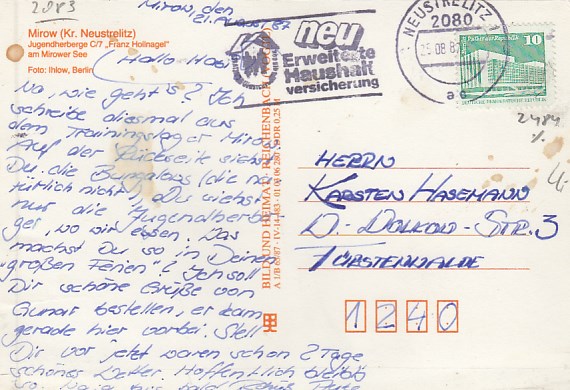 2083
Mirow, den
21. August 87
Mirow (Kr. Neustrelitz)
Jugendherberge C/7 „Franz Hollnagel"
am Mirower See
Foto: Ihlow, Berlin
Hallo
Na, wie geht's? Ich
schreibe diesmal aus
dem Trainingslager Mirow.
Auf der Rückseite siehst
Du die Bungalows (die na-
türlich nicht), Du siehst
nur die Jugendherber-
ge, wo wir essen. Was
machst Du so in Deinen
"großen Ferien"? Ich soll
Dir schöne Grüße von
Gunar bestellen, er kam
gerade hier vorbei. Stell
Dir vor jetzt waren schon 2 Tage
schönes Wetter. Hoffentlich bleibt's
so. Naja bis bald
neu
Erweiterte
Haushalt
versicherung
NEUSTRELITZ 1
2080
25.08.87
a c
10
DDR
2484
BILD UND HEIMAT REICHENBACH
A 1/B 68/87 · IV-14-483 · 01 03 06 280
HERRN
KARSTEN HASEMANN
D. DOLKOW-STR. 3
FÜRSTENWALDE
1240